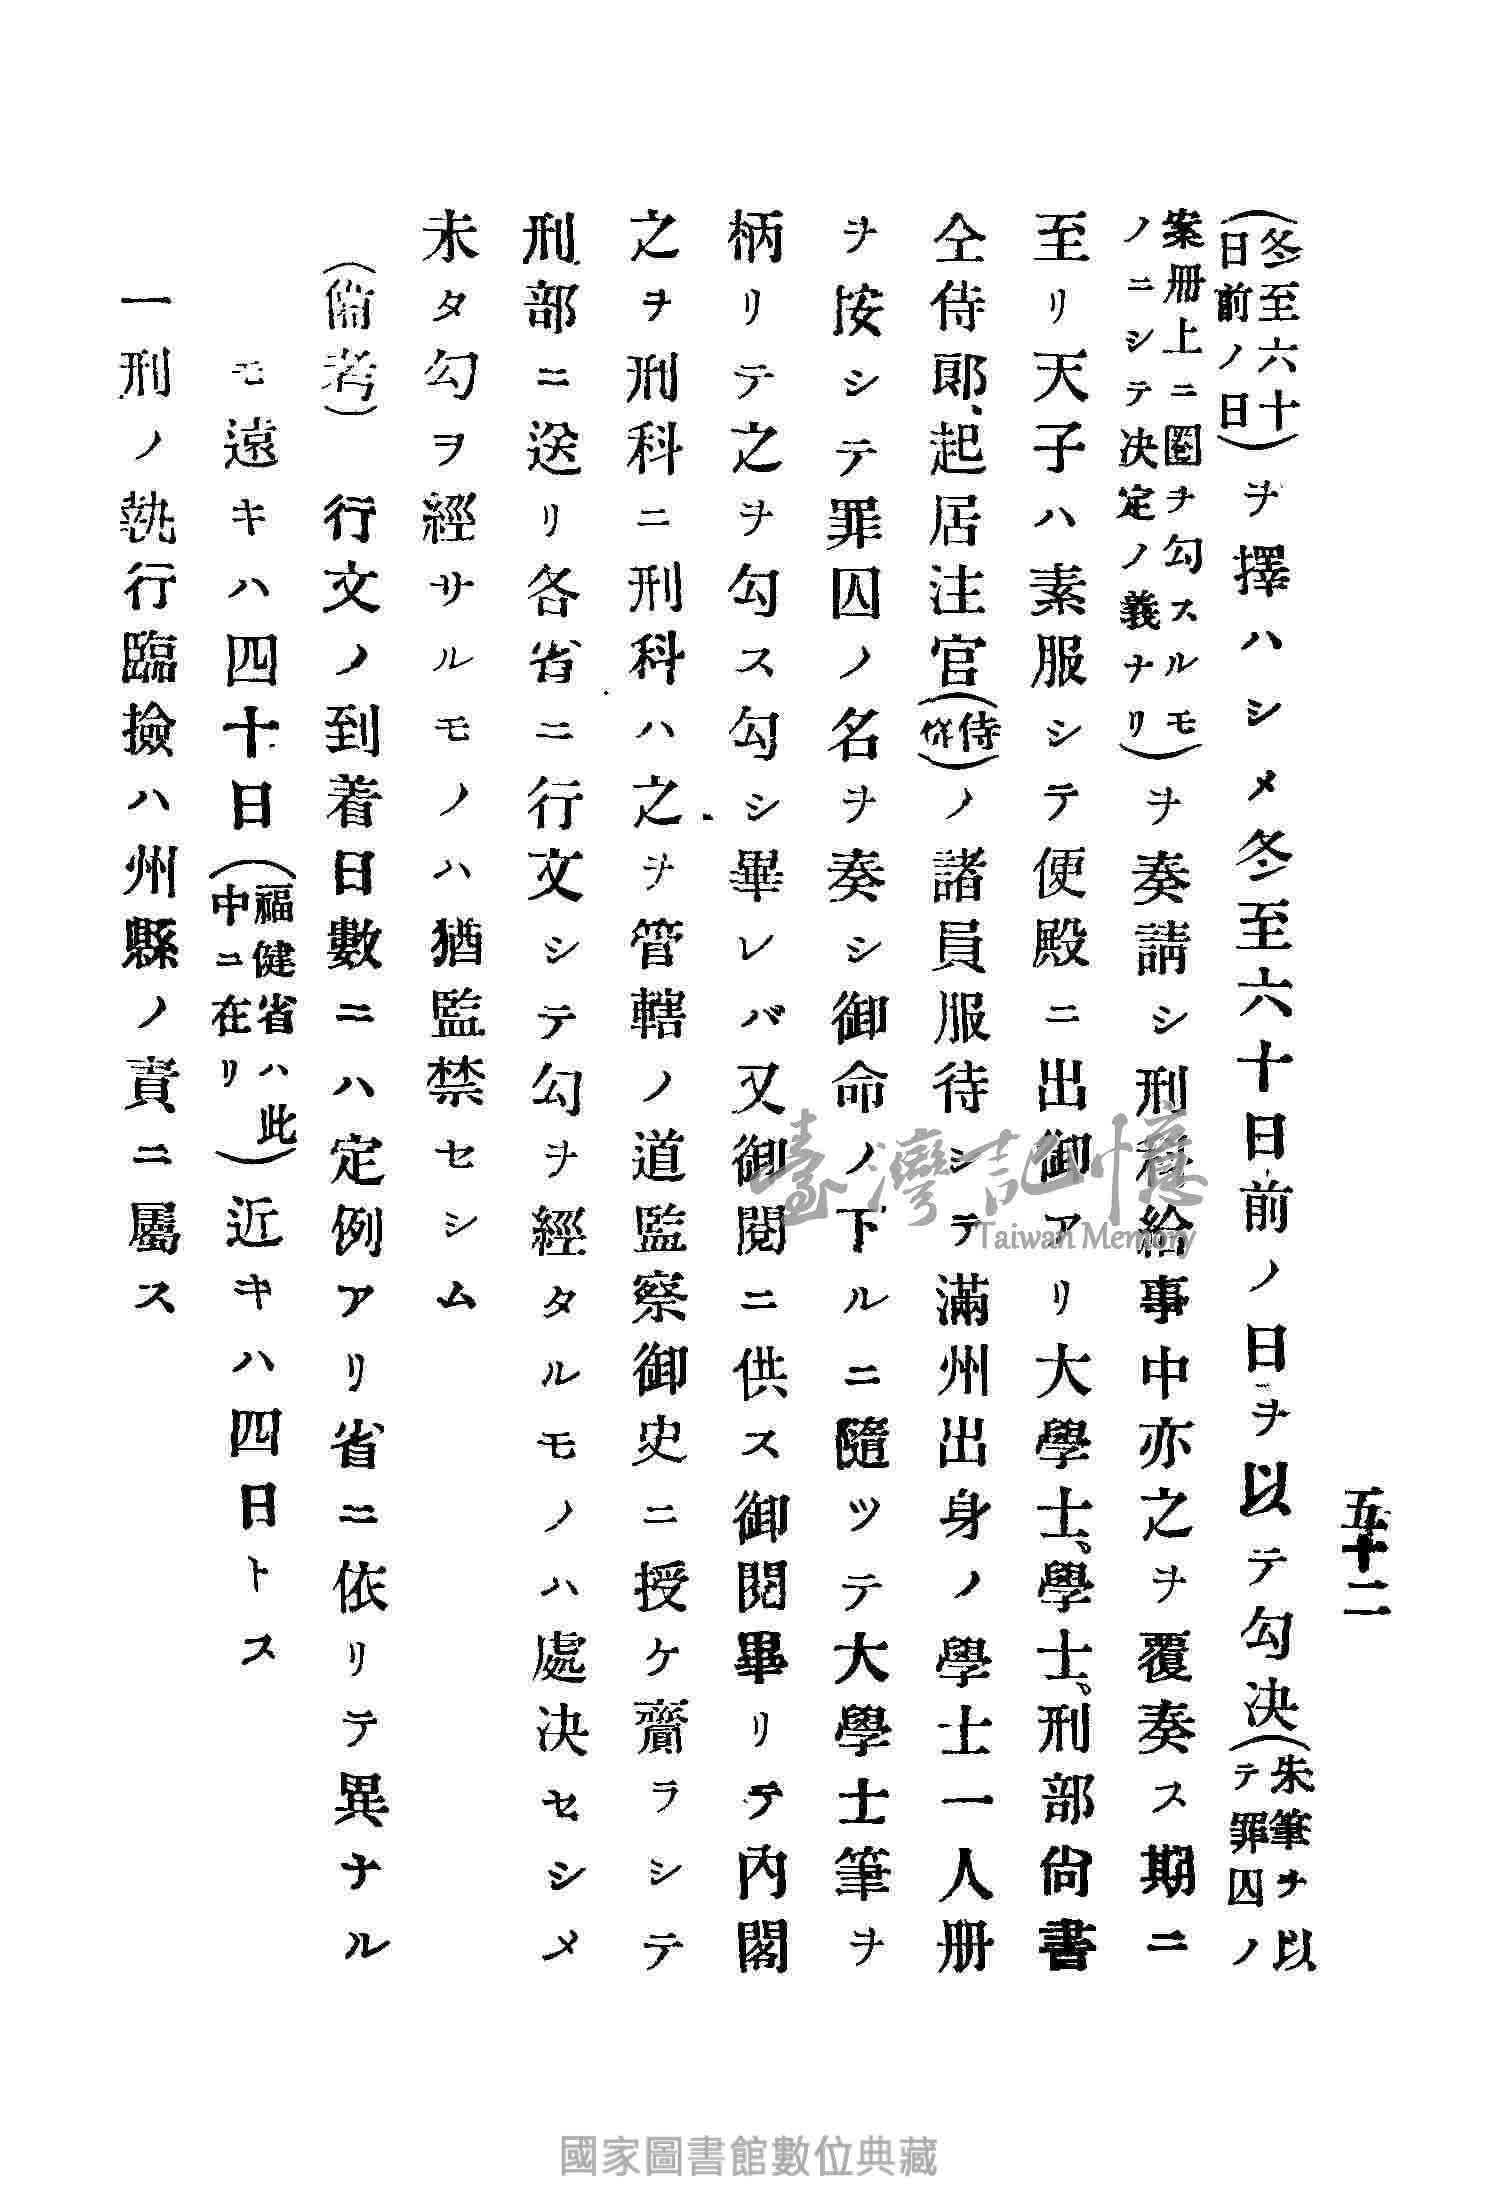 五十二
(冬至六十日前ノ日)ヲ擇ハシメ冬至六十日前ノ日ヲ以テ勾决(朱筆ヲ以テ罪囚ノ
案冊上ニ圈ヲ勾スルモノニシテ决定ノ義ナリ)ヲ奏請シ刑科給事中亦之ヲ覆奏ス期ニ
至リ天子ハ素服シテ便殿ニ出御アリ大學士、學士、刑部尙書
仝侍郞、起居注官(侍從)ノ諸員服待シテ滿州出身ノ學士一人册
ヲ按シテ罪囚ノ名ヲ奏シ御命ノ下ルニ隨ツテ大學士筆ヲ
柄リテ之ヲ勾ス勾シ畢レバ又御閱ニ供ス御閱畢リテ內閣
之ヲ刑科ニ刑科ハ之ヲ管轄ノ道監察御史ニ授ケ齎ラシテ
刑部ニ送リ各省ニ行文シテ勾ヲ經タルモノハ處决セシメ
未タ勾ヲ經サルモノハ猶監禁セシム
(備考) 行文ノ到着日數ニハ定例アリ省ニ依リテ異ナル
モ遠キハ四十日(福健省ハ此中ニ在リ)近キハ四日トス
一刑ノ執行臨撿ハ州縣ノ責ニ屬ス
臺灣記憶
Taiwan Memory
國家圖書館數位典藏